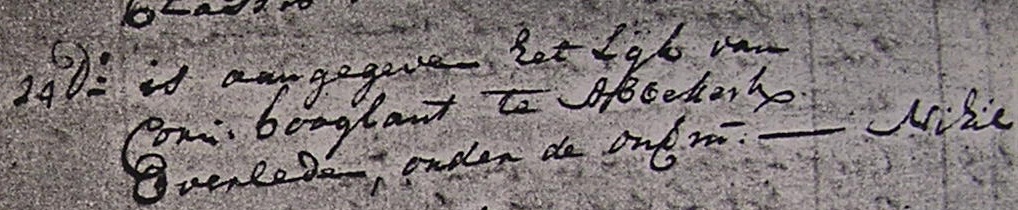 24 Do: is aangegeven het Lijk van
Corn: Hooglant te Abbekerk
Overleden, onder de onverm: — Nihil